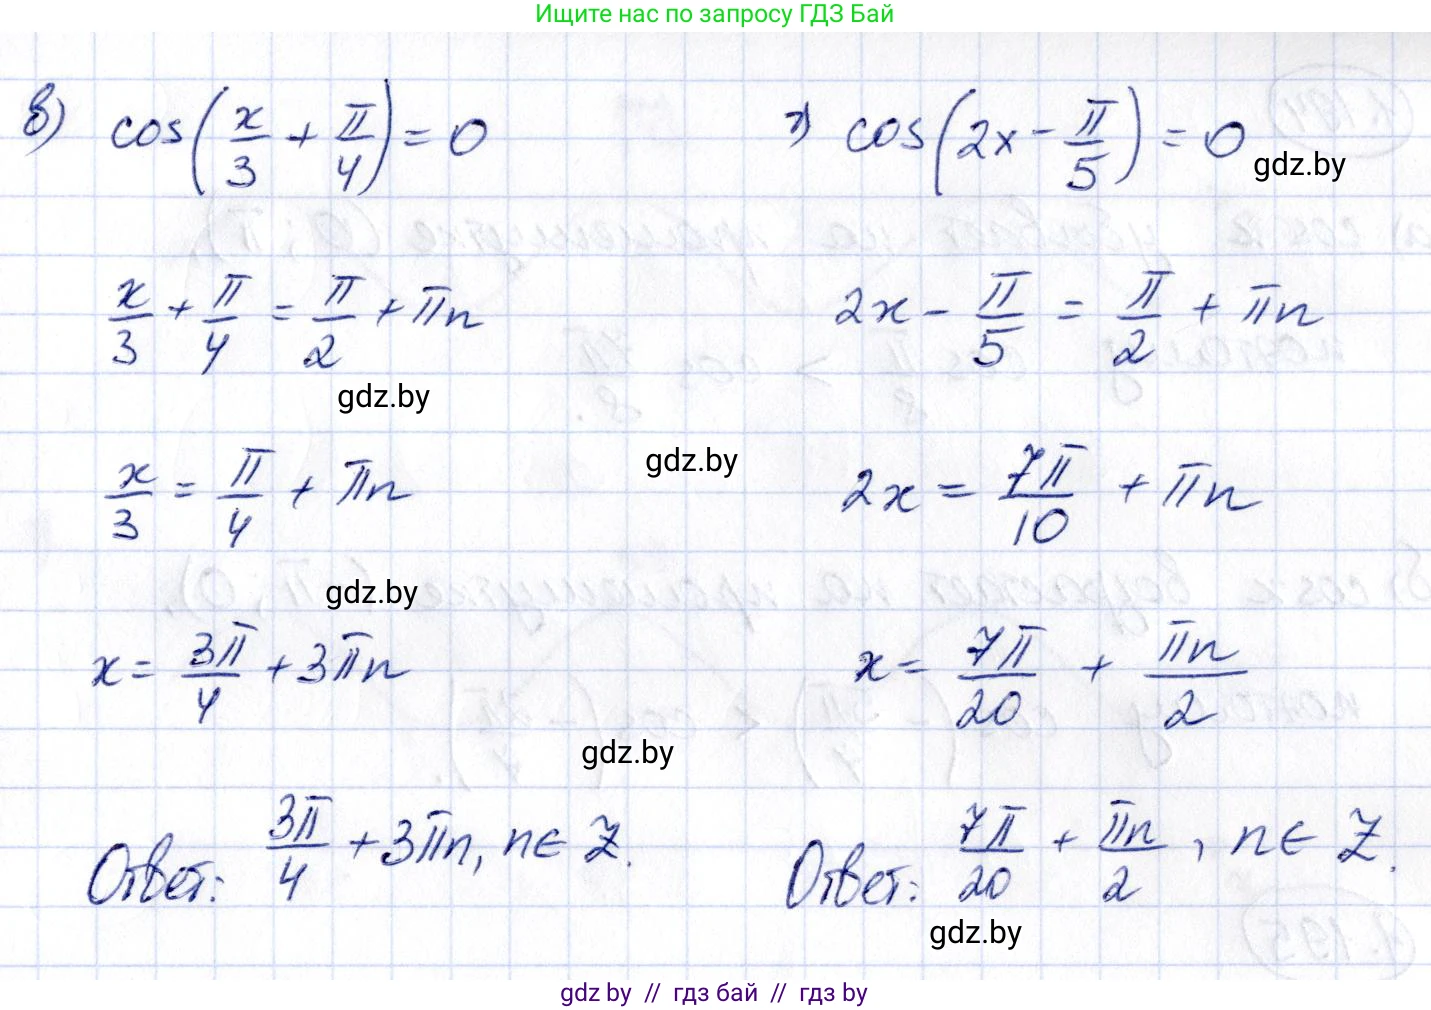 Ищите нас по запросу ГДЗ Бай
в) cos(x/3 + π/4) = 0
x/3 + π/4 = π/2 + πn
gdz.by
x/3 = π/4 + πn
gdz.by
x = 3π/4 + 3πn
Ответ: 3π/4 + 3πn, n∈Z.
gdz.by
gdz.by
г) cos(2x - π/5) = 0
gdz.by
2x - π/5 = π/2 + πn
2x = 7π/10 + πn
x = 7π/20 + πn/2
Ответ: 7π/20 + πn/2, n∈Z.
gdz.by
gdz by // гдз бай // гдз by